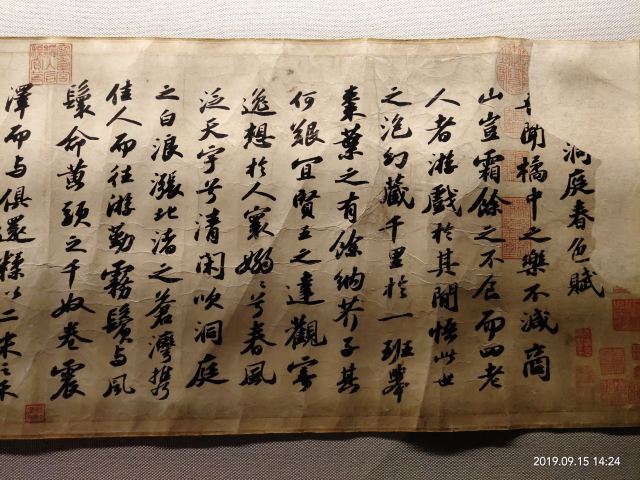 洞庭春色賦
聞橘中之樂不減商
山豈霜餘之不食而四老
人者游戲於其間悟此世
之泡幻藏千里於一班舉
棗葉之有餘納芥子其
何艱宜賢王之達觀寄
逸想於人寰嫋〻兮春風
泛天宇兮清閑吹洞庭
之白浪漲北渚之蒼灣攜
佳人而往游勤霧鬢与風
鬟命黃頭之千奴卷震
澤而与俱還糅以二米之禾
2019.09.15 14:24